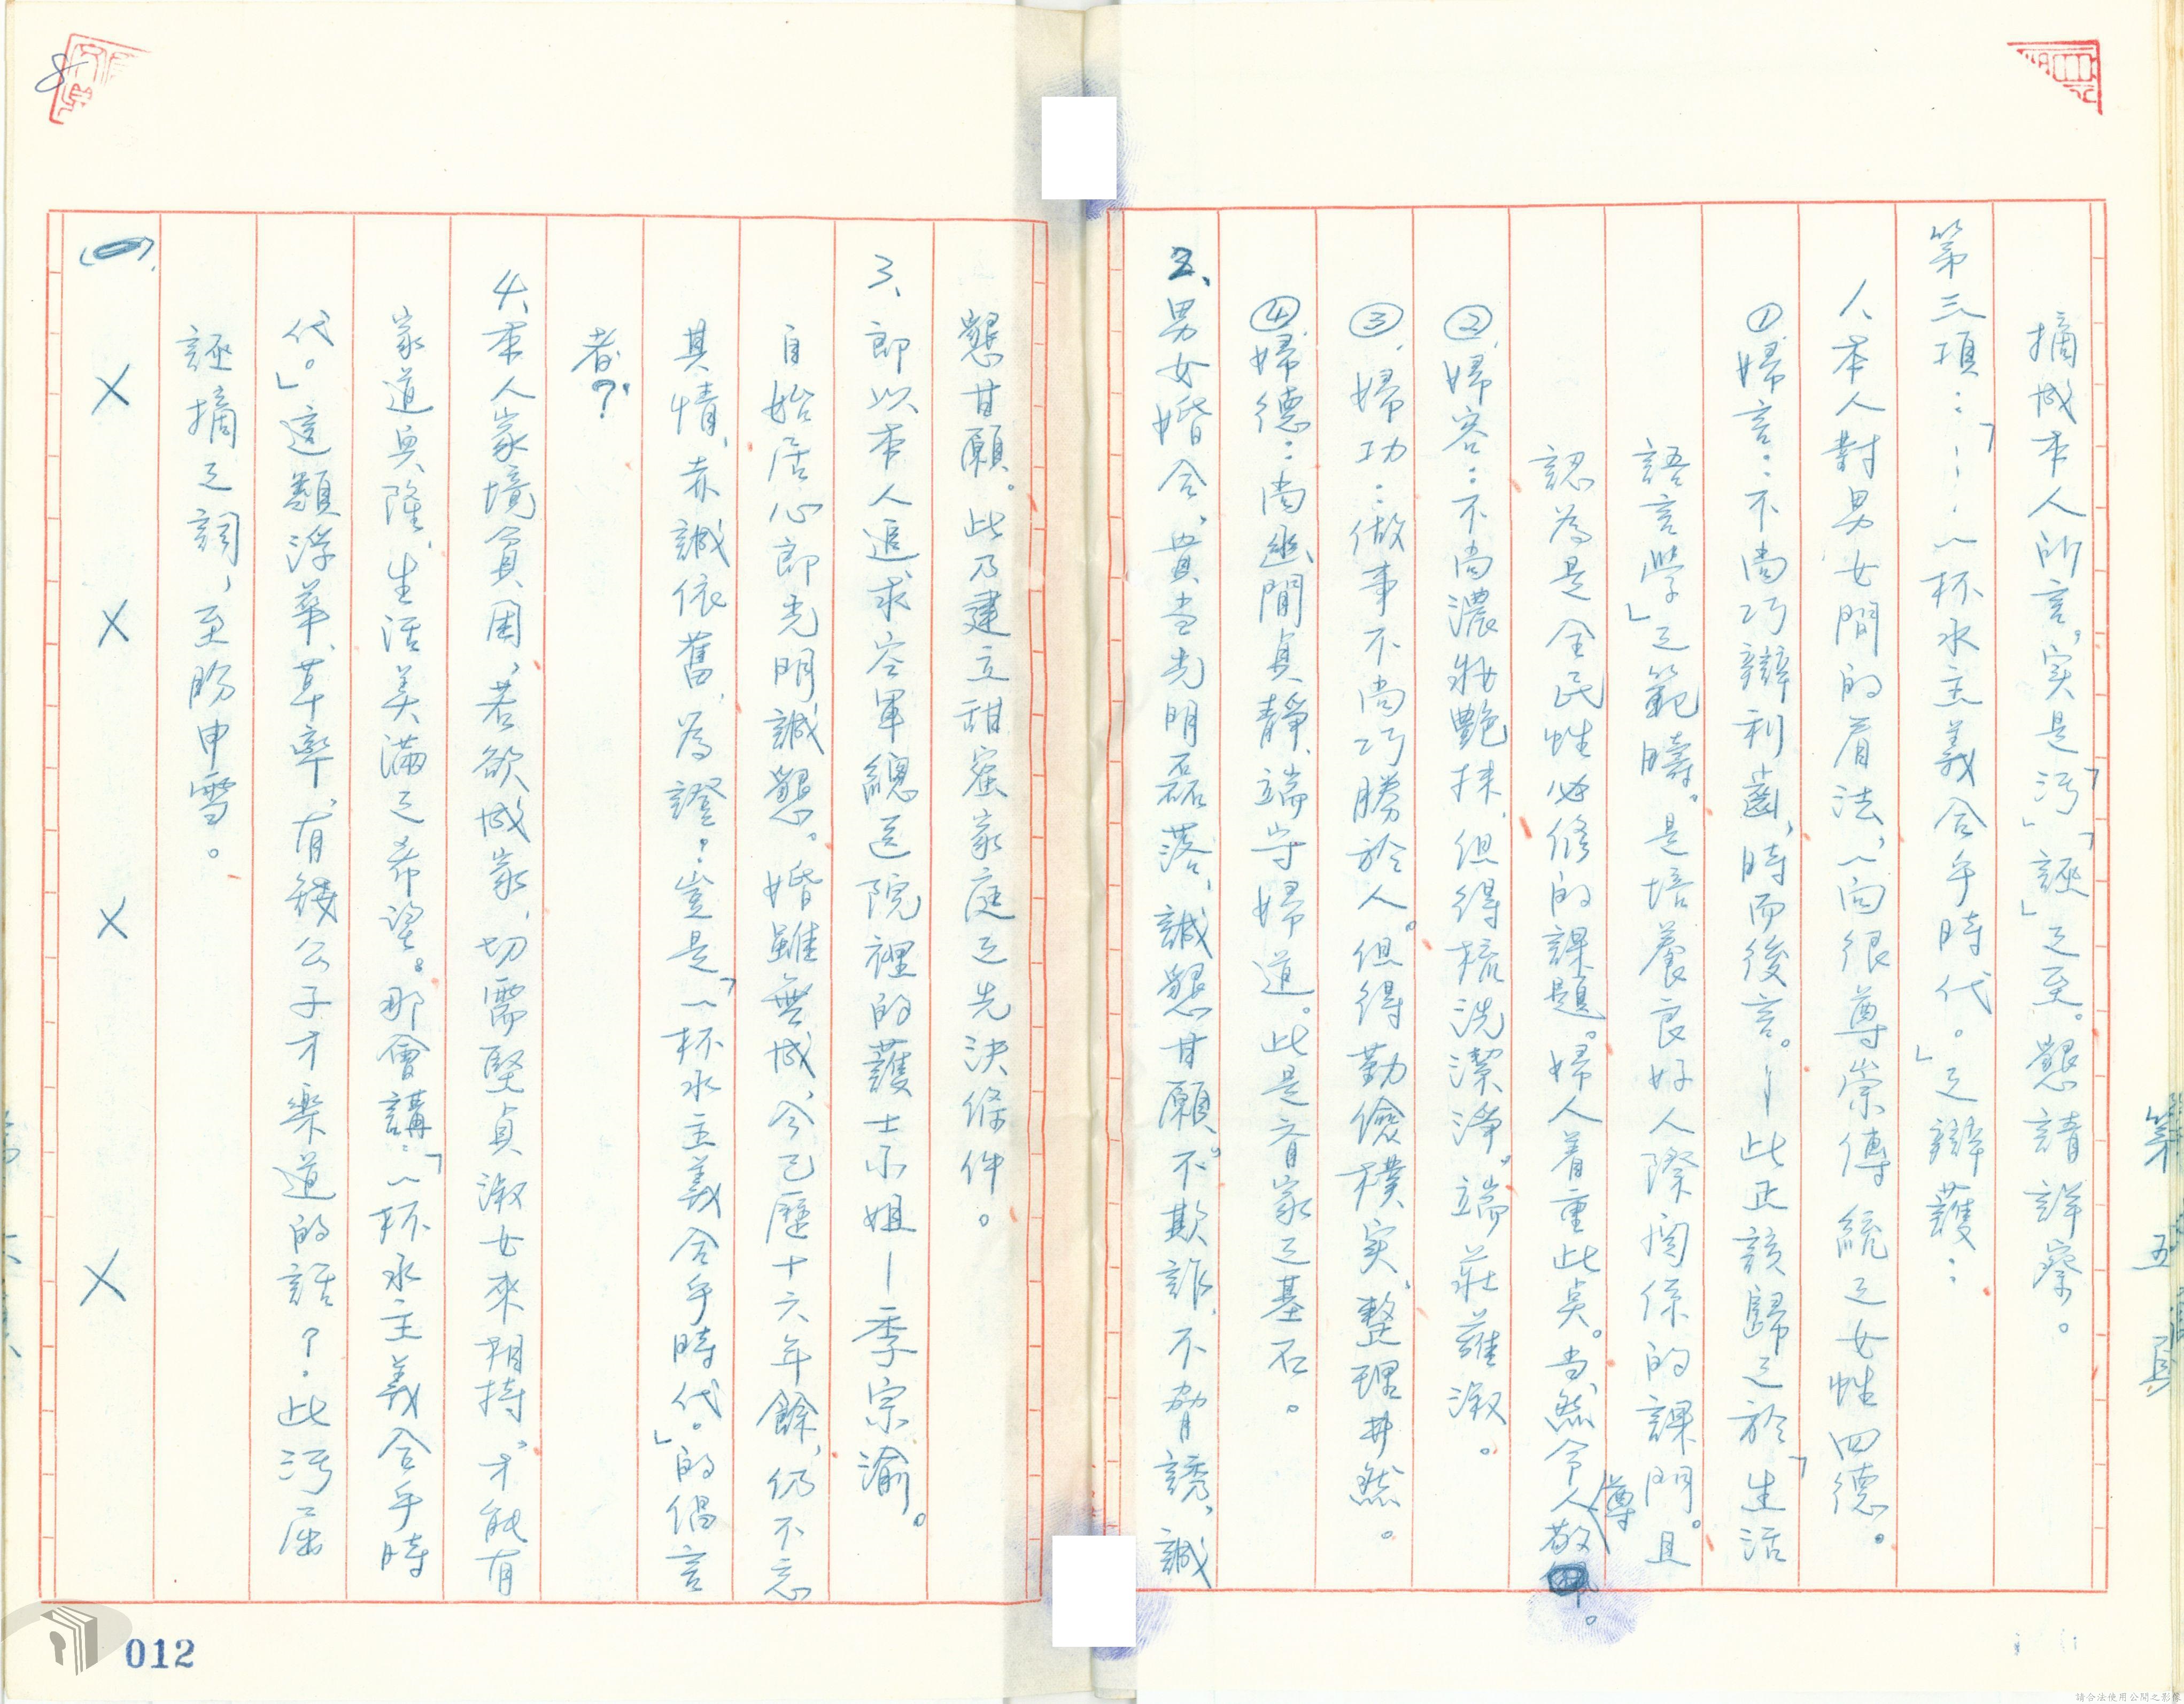 第五頁
摘成本人所言。实是「污」「誣」之至。懇請詳察。
第三項：「……一杯水主義合乎時代。」之辯護：
1、本人對男女間的看法，一向很尊崇傳統之女性四德。
①婦言：不尚巧辯利齒，時而後言。—此正該歸之於「生活
語言學」之範疇。是培養良好人際関係的課門。且
認為是全民性必修的課題。婦人着重此点。当然令人尊敬。
②婦容：不尚濃妝艷抹，但得梳洗潔淨。端莊蘿淑。
③婦功：做事不尚巧勝於人。但得勤儉樸実、整理井然。
④婦德：尚幽閒貞靜、端守婦道。此是齐家之基石。
2、男女婚合，貴当光明磊落、誠懇甘願。不欺詐，不脅誘，誠
懇甘願。此乃建立甜蜜家庭之先決條件。
3、即以本人追求空軍總送院裡的護士小姐—季宗渝。
自始居心即光明誠懇。婚雖無成，今已歷十六年餘，仍不忘
其情，赤誠依舊，為證。豈是「一杯水主義合乎時代。」的倡言
者？
4、本人家境貧困，若欲成家，切需堅貞淑女來相持，才能有
家道興隆，生活美滿之希望。那會講：「一杯水主義合乎時
代。」這類浮華、草率，有錢公子才樂道的話？此污屈
誣摘之詞，至盼申雪。
(一)、× × × ×
012
請合法使用公開之影像